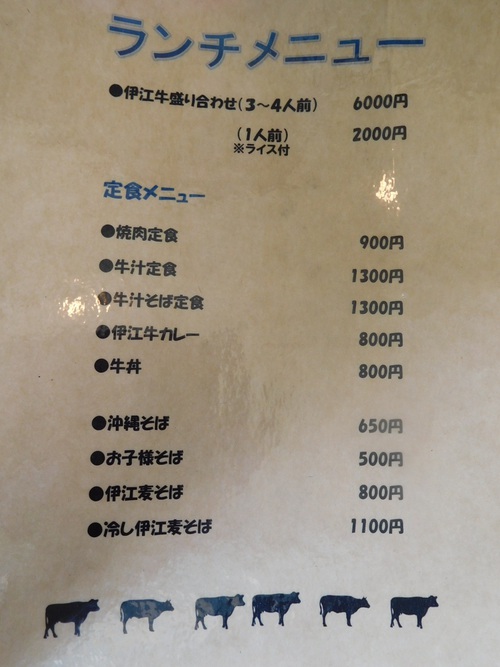 ランチメニュー
●伊江牛盛り合わせ(3〜4人前) 6000円
(1人前) 2000円
※ライス付
定食メニュー
●焼肉定食 900円
●牛汁定食 1300円
●牛汁そば定食 1300円
●伊江牛カレー 800円
●牛丼 800円
●沖縄そば 650円
●お子様そば 500円
●伊江麦そば 800円
●冷し伊江麦そば 1100円